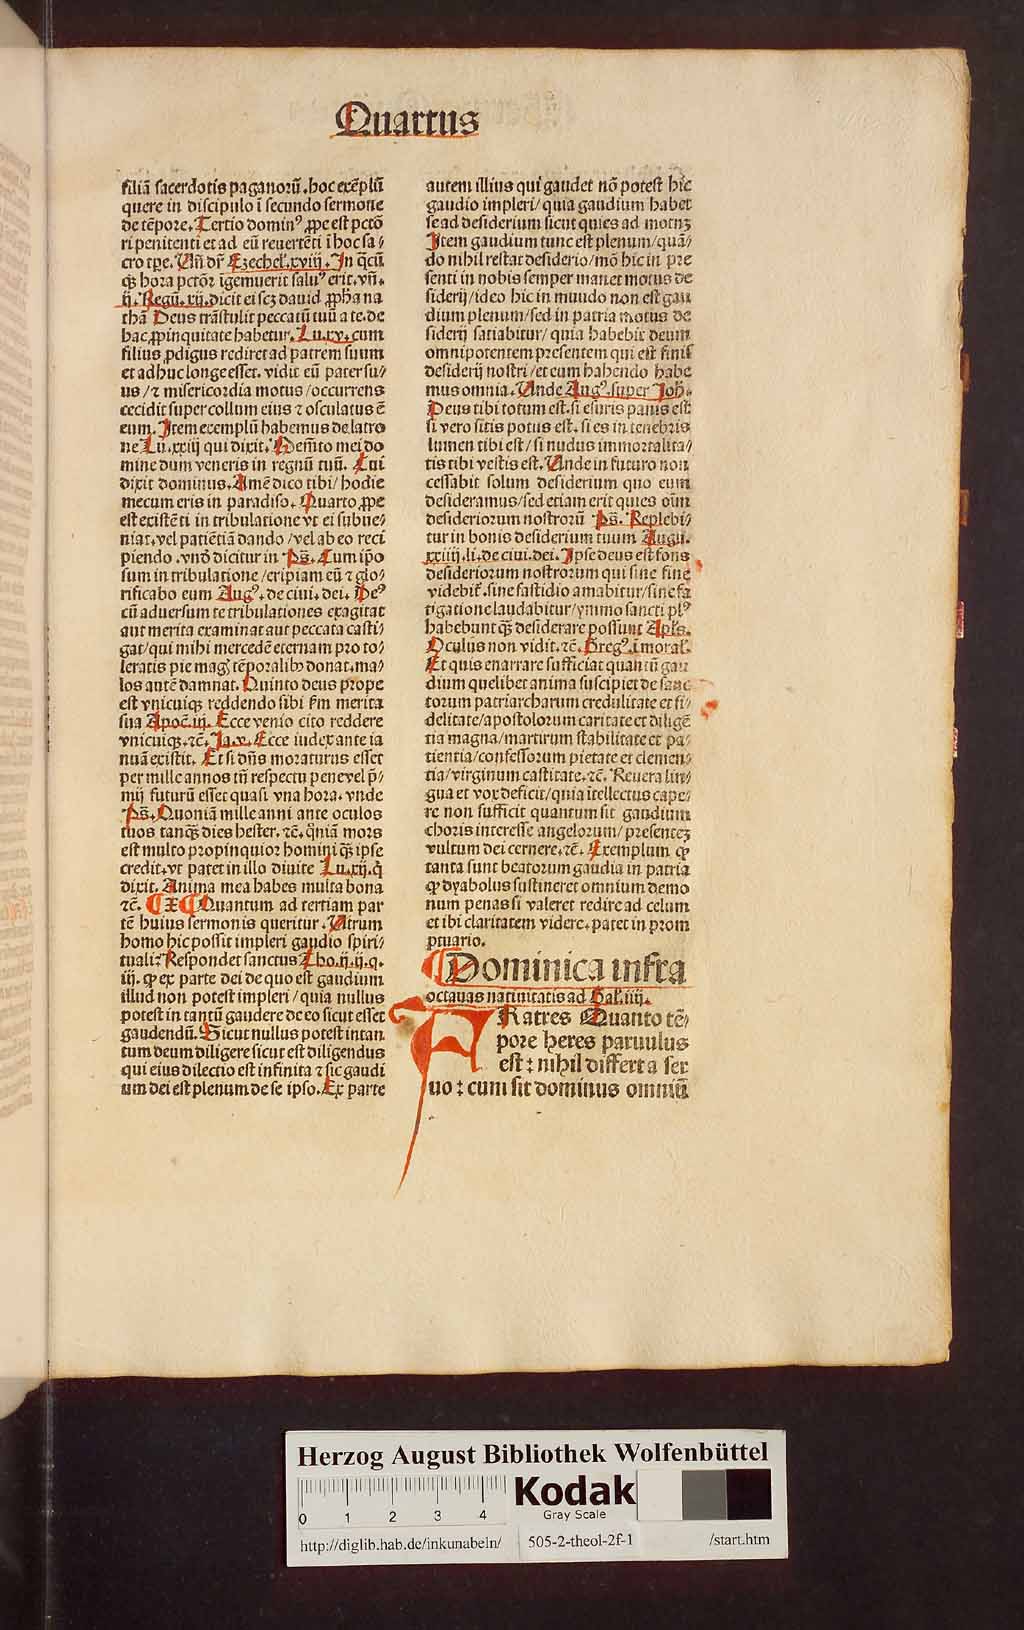 Quartus
filiā sacerdotis paganorū. hoc exēplū
quere in discipulo ī secundo sermone
de tēpore. Tertio dominꝰ ꝓpe est pctō
ri penitenti et ad eū reuertēti ī hoc sa/
cro tꝑe. Vn̄ dr̄ Ezechel̓. xviij. In q̄cū
qꝫ hora pctōr īgemuerit saluꝰ erit. vn̄.
ij. Regū. xij. dicit ei scꝫ dauid ꝓpha na
thā Deus trāstulit peccatū tuū a te. de
hac ꝓpinquitate habetur. Lu. xv. cum
filius ꝓdigus rediret ad patrem suum
et adhuc longe esset. vidit eū pater su/
us / ⁊ misericordia motus / occurrens
cecidit super collum eius ⁊ osculatus ē
eum. Item exemplū habemus de latro
ne Lu. xxiij qui dixit. Memēto mei do
mine dum veneris in regnū tuū. Cui
dixit dominus. Amē dico tibi / hodie
mecum eris in paradiso. Quarto ꝓpe
est existēti in tribulatione vt ei subue/
niat. vel patiētiā dando / vel ab eo reci
piendo. vnō dicitur in Ps̄. Cum ip̄o
sum in tribulatione / eripiam eū ⁊ glo/
rificabo eum Augꝰ. de ciui. dei. Deꝰ
cū aduersum te tribulationes exagitat
aut merita examinat aut peccata casti/
gat / qui mihi mercedē eternam pro to/
leratis pie mag̓ tēporalibꝫ donat. ma/
los autē damnat. Quinto deus prope
est vnicuiqꝫ reddendo sibi s̄m merita
sua Apoc̄. iij. Ecce venio cito reddere
vnicuiqꝫ. ⁊c̄. Ja. v. Ecce iudex ante ia
nuā existit. Et si dn̄s moraturus esset
per mille annos tn̄ respectu pene vel p̄/
mij futurū esset quasi vna hora. vnde
Ps̄. Quoniā mille anni ante oculos
tuos tanqꝫ dies hester. ⁊c̄. q̄niā mors
est multo propinquior homini qꝫ ipse
credit. vt patet in illo diuite Lu. xij. q̄
dixit. Anima mea habes multa bona
⁊c̄. ¶ X ¶ Quantum ad tertiam par
tē huius sermonis queritur. Vtrum
homo hic possit impleri gaudio spiri/
tuali: Respondet sanctus Tho. ij. ij. q.
iij. qp ex parte dei de quo est gaudium
illud non potest impleri / quia nullus
potest in tantū gaudere de eo sicut esset
gaudendū. Sicut nullus potest intan
tum deum diligere sicut est diligendus
qui eius dilectio est infinita ⁊ sic gaudi
um dei est plenum de se ipso. Ex parte
autem illius qui gaudet nō potest hic
gaudio impleri / quia gaudium habet
se ad desiderium sicut quies ad motuꝫ
Item gaudium tunc est plenum / quā/
do nihil restat desiderio / mō hic in pre
senti in nobis semper manet motus de
siderij / ideo hic in mundo non est gau
dium plenum / sed in patria motus de
siderij satiabitur / quia habebit deum
omnipotentem presentem qui est finis
desiderij nostri / et eum habendo habe
mus omnia. Vnde Augꝰ. super Joh̄.
Deus tibi totum est. si esuris panis est:
si vero sitis potus est. si es in tenebris
lumen tibi est / si nudus immortalita/
tis tibi vestis est. Vnde in futuro non
cessabit solum desiderium quo eum
desideramus / sed etiam erit quies oīm
desideriorum nostrorū Ps̄. Replebi/
tur in bonis desiderium tuum Augu.
xxiiij. li. de ciui. dei. Ipse deus est fons
desideriorum nostrorum qui sine fine
videbit̄. sine fastidio amabitur / sine fa
tigatione laudabitur / ymmo sancti plꝰ
habebunt qꝫ desiderare possunt Apl̄s.
Oculus non vidit. ⁊c̄. Gregꝰ. ī moral̓.
Et quis enarrare sufficiat quantū gau
dium quelibet anima suscipiet de sanc
torum patriarcharum credulitate et fi/
delitate / apostolorum caritate et diligē
tia magna / martirum stabilitate et pa/
tientia / confessorum pietate et clemen/
tia / virginum castitate. ⁊c̄. Reuera lin/
gua et vox deficit / quia ītellectus cape/
re non sufficit quantum sit gaudium
choris interesse angelorum / presenteꝫ
vultum dei cernere. ⁊c̄. Exemplum qp
tanta sunt beatorum gaudia in patria
qp dyabolus sustineret omnium demo
num penas si valeret redire ad celum
et ibi claritatem videre. patet in prom
ptuario.
¶ Dominica infra
octauas natiuitatis ad Gal̓. iiij.
FRatres Quanto tē/
pore heres paruulus
est: nihil differt a ser
uo: cum sit dominus omniū
Herzog August Bibliothek Wolfenbüttel
0 1 2 3 4
Kodak
Gray Scale
http://diglib.hab.de/inkunabeln/ 505-2-theol-2f-1 /start.htm